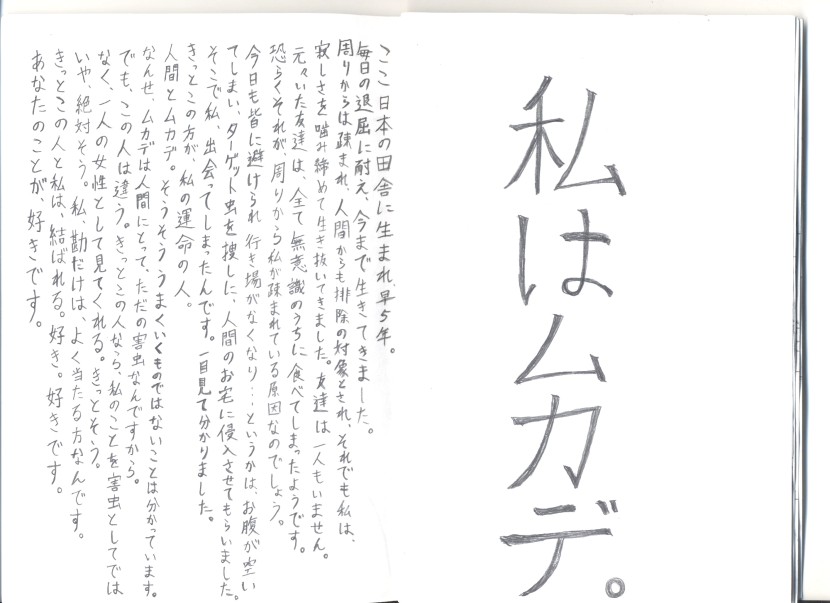 私はムカデ。
ここ日本の田舎に生まれ、早5年。
毎日の退屈に耐え、今まで生きてきました。
周りからは疎まれ、人間からも排除の対象とされ、それでも私は、
寂しさを噛み締めて生き抜いてきました。友達は一人もいません。
元々いた友達は、全て無意識のうちに食べてしまったようです。
恐らくそれが、周りから私が疎まれている原因なのでしょう。
今日も皆に避けられ行き場がなくなり…というかは、お腹が空い
てしまい、ターゲット虫を捜しに、人間のお宅に侵入させてもらいました。
そこで私、出会ってしまったんです。一目見て分かりました。
きっとこの方が、私の運命の人。
人間とムカデ。そうそううまくいくものではないことは分かっています。
なんせ、ムカデは人間にとって、ただの害虫なんですから。
でも、この人は違う。きっとこの人なら、私のことを害虫としてでは
なく、一人の女性として見てくれる。きっとそう。
いや、絶対そう。私、勘だけは、よく当たる方なんです。
きっとこの人と私は、結ばれる。好き。好きです。
あなたのことが、好きです。